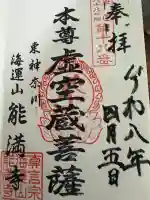 奉拝
令和八年
四月五日
本尊虚空蔵菩薩
東神奈川
海運山能満寺